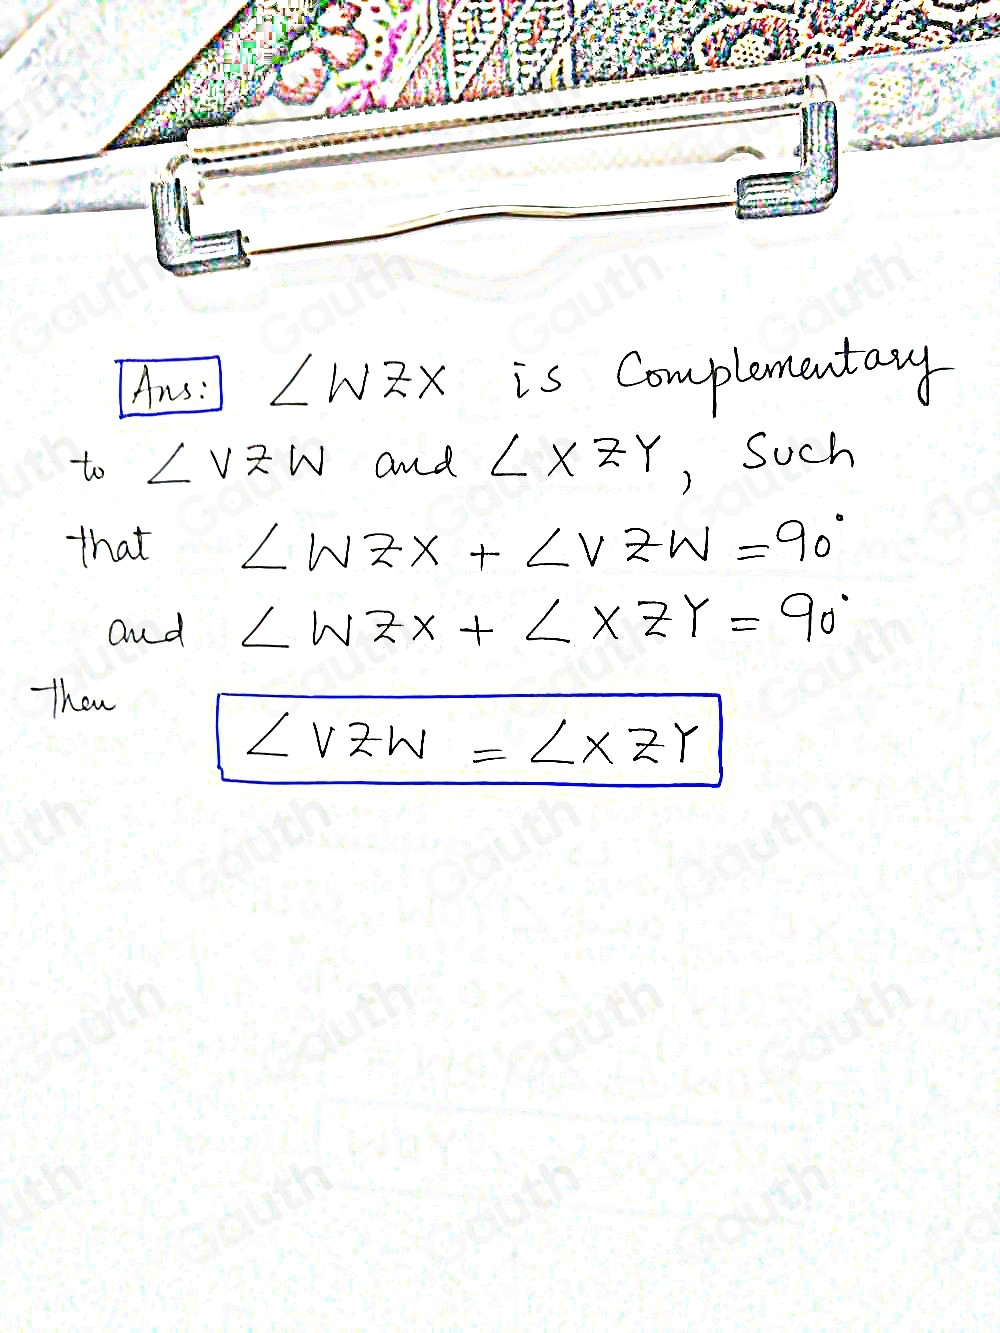 Ans: ∠WZX is Complementary
to ∠VZW and ∠XZY, Such
that ∠WZX + ∠VZW = 90°
and ∠WZX + ∠XZY = 90°
Then
∠VZW = ∠XZY
Gauth